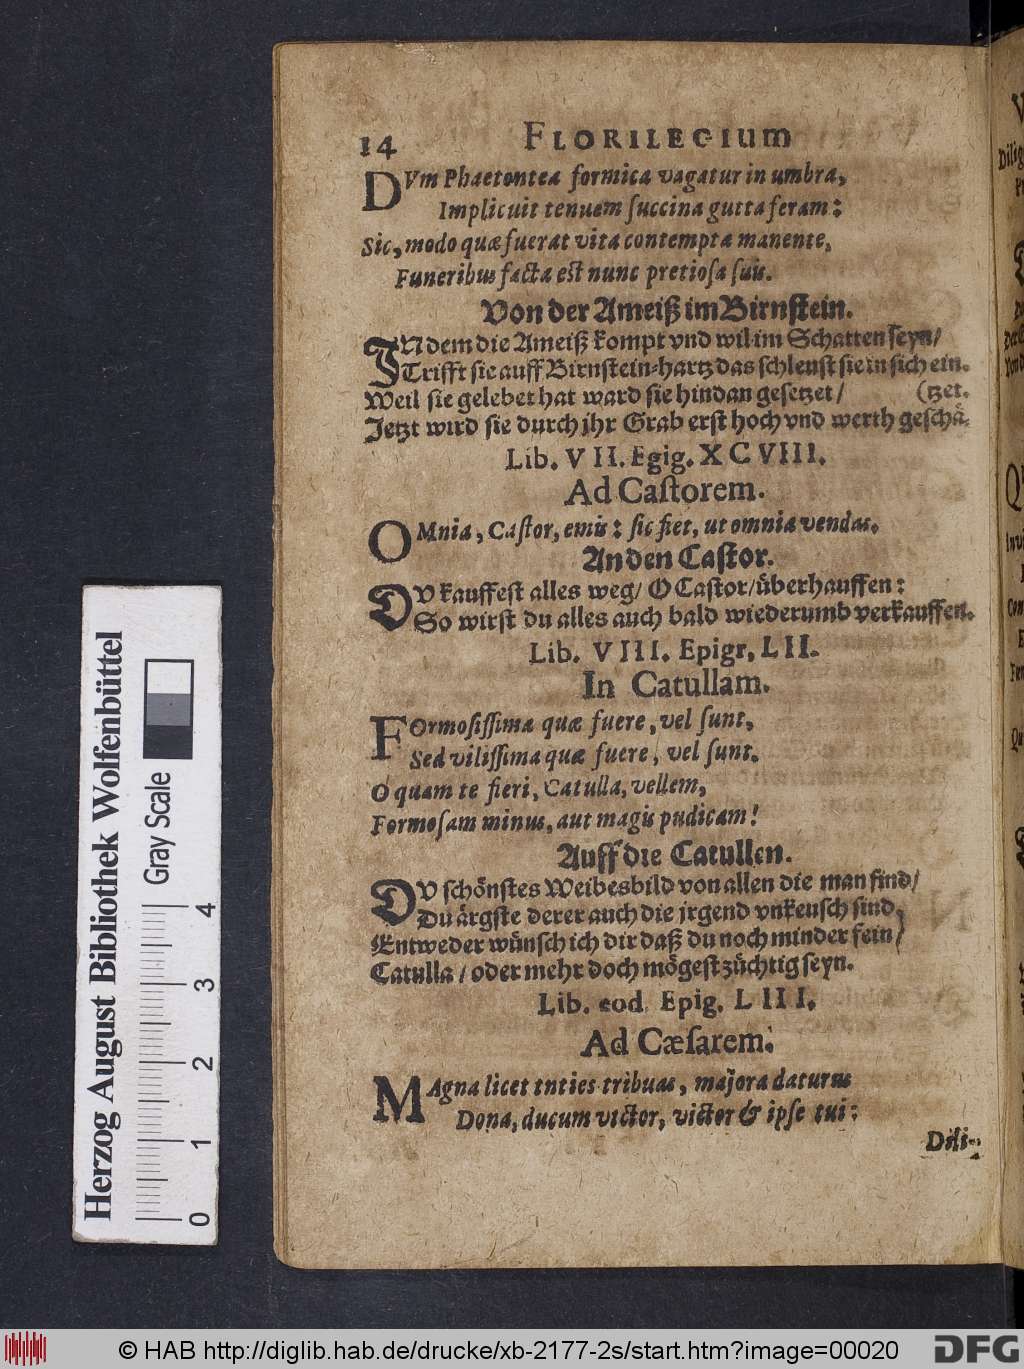 14 FLORILEGIUM
DVm Phaetontea formica vagatur in umbra,
Implicuit tenuem ſuccina gutta feram:
Sic, modo quæ fuerat vita contempta manente,
Funeribus facta eſt nunc pretioſa ſuis.
Von der Ameiß im Birnſtein.
INdem die Ameiß kompt vnd wil im Schatten ſeyn/
Trifft ſie auff Birnſtein-hartz das ſchleuſt ſie in ſich ein.
Weil ſie gelebet hat ward ſie hindan geſetzet/ (tzet.
Jetzt wird ſie durch jhr Grab erſt hoch vnd werth geſchä-
Lib. VII. Egig. XCVIII.
Ad Caſtorem.
OMnia, Caſtor, emis: ſic fiet, ut omnia vendas.
An den Caſtor.
DV kauffeſt alles weg/ O Caſtor/ überhauffen:
So wirſt du alles auch bald wiederumb verkauffen.
Lib. VIII. Epigr, LII.
In Catullam.
FOrmoſiſſima quæ fuere, vel ſunt,
Sed viliſſima quæ fuere, vel ſunt.
O quam te fieri, Catulla, vellem,
Formoſam minus, aut magis pudicam!
Auff die Catullen.
DV ſchönſtes Weibesbild von allen die man find/
Du ärgſte derer auch die jrgend vnkeuſch ſind,
Entweder wünſch ich dir daß du noch minder fein/
Catulla/ oder mehr doch mögeſt züchtig ſeyn.
Lib. eod. Epig. LIII.
Ad Cæſarem.
MAgna licet tnties tribuas, majora daturus
Dona, ducum victor, victor & ipſe tui:
Dili-
Herzog August Bibliothek Wolfenbüttel
Gray Scale
0 1 2 3 4
© HAB http://diglib.hab.de/drucke/xb-2177-2s/start.htm?image=00020
DFG